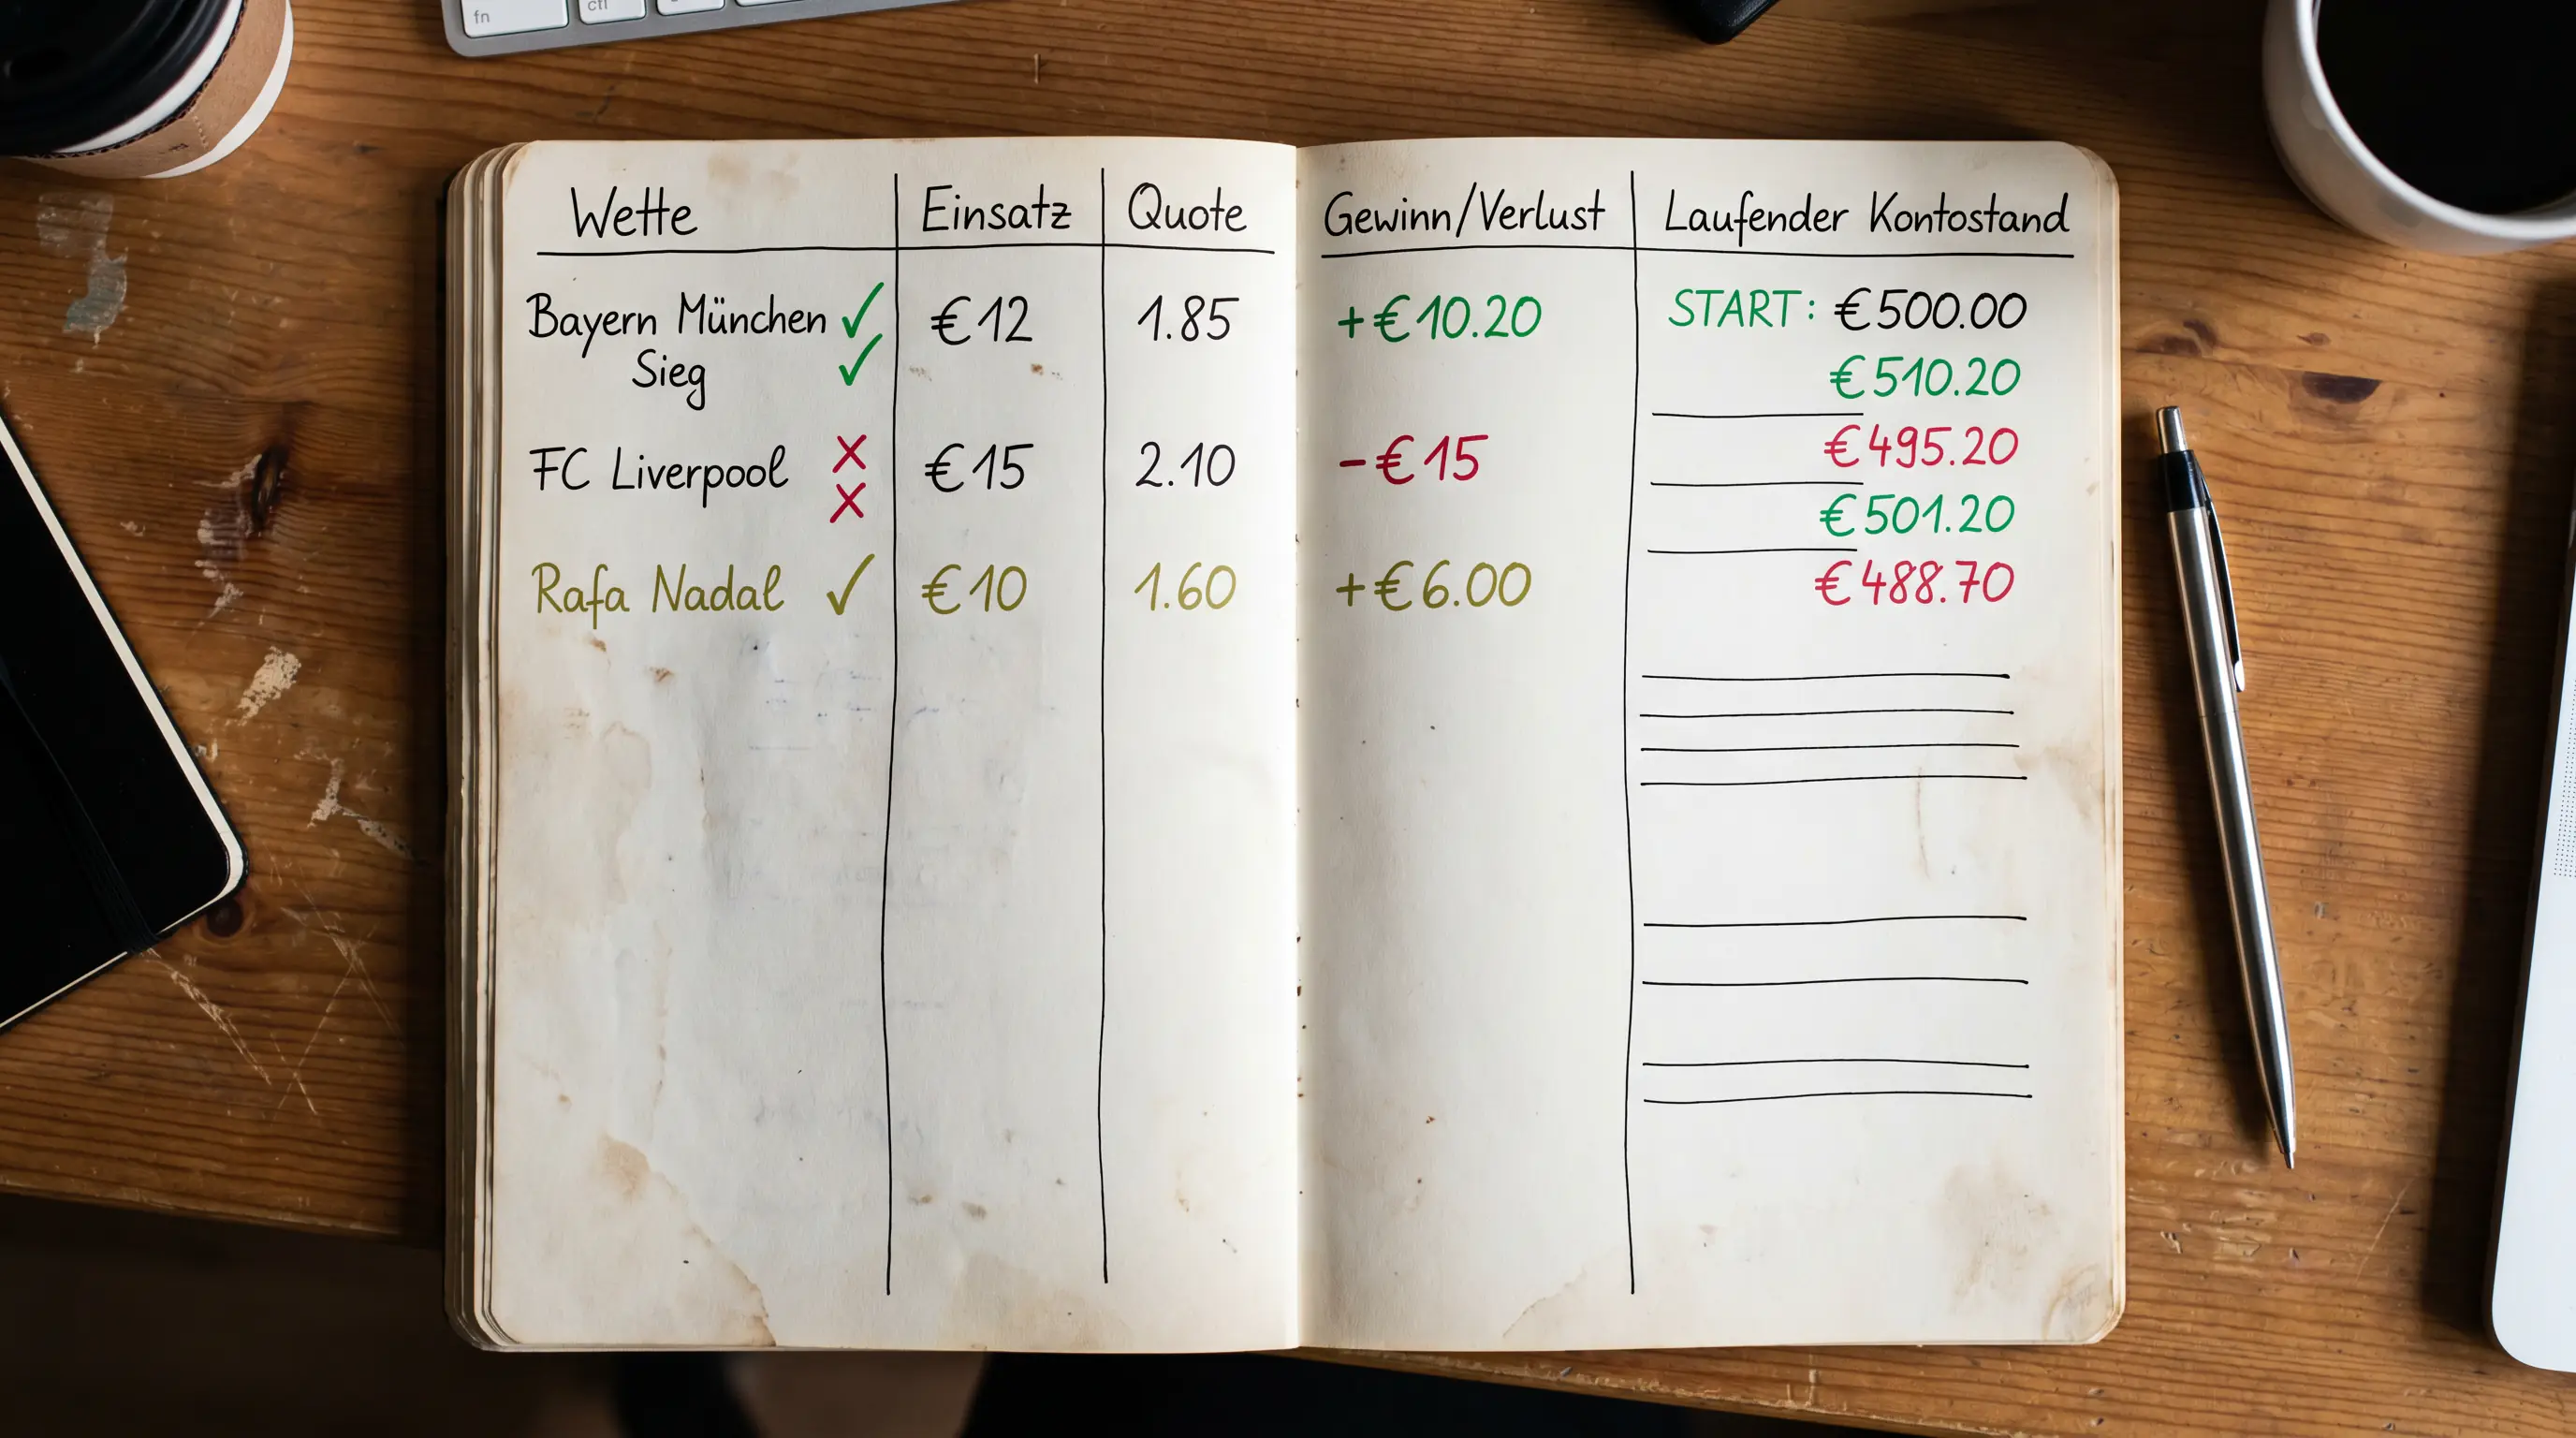 fn
ctl
Wette Einsatz Quote Gewinn/Verlust Laufender Kontostand
Bayern München ✓ €12 1.85 +€10.20 START: €500.00
Sieg ✓ €510.20
FC Liverpool × €15 2.10 -€15 €495.20
× €501.20
Rafa Nadal ✓ €10 1.60 +€6.00 €488.70